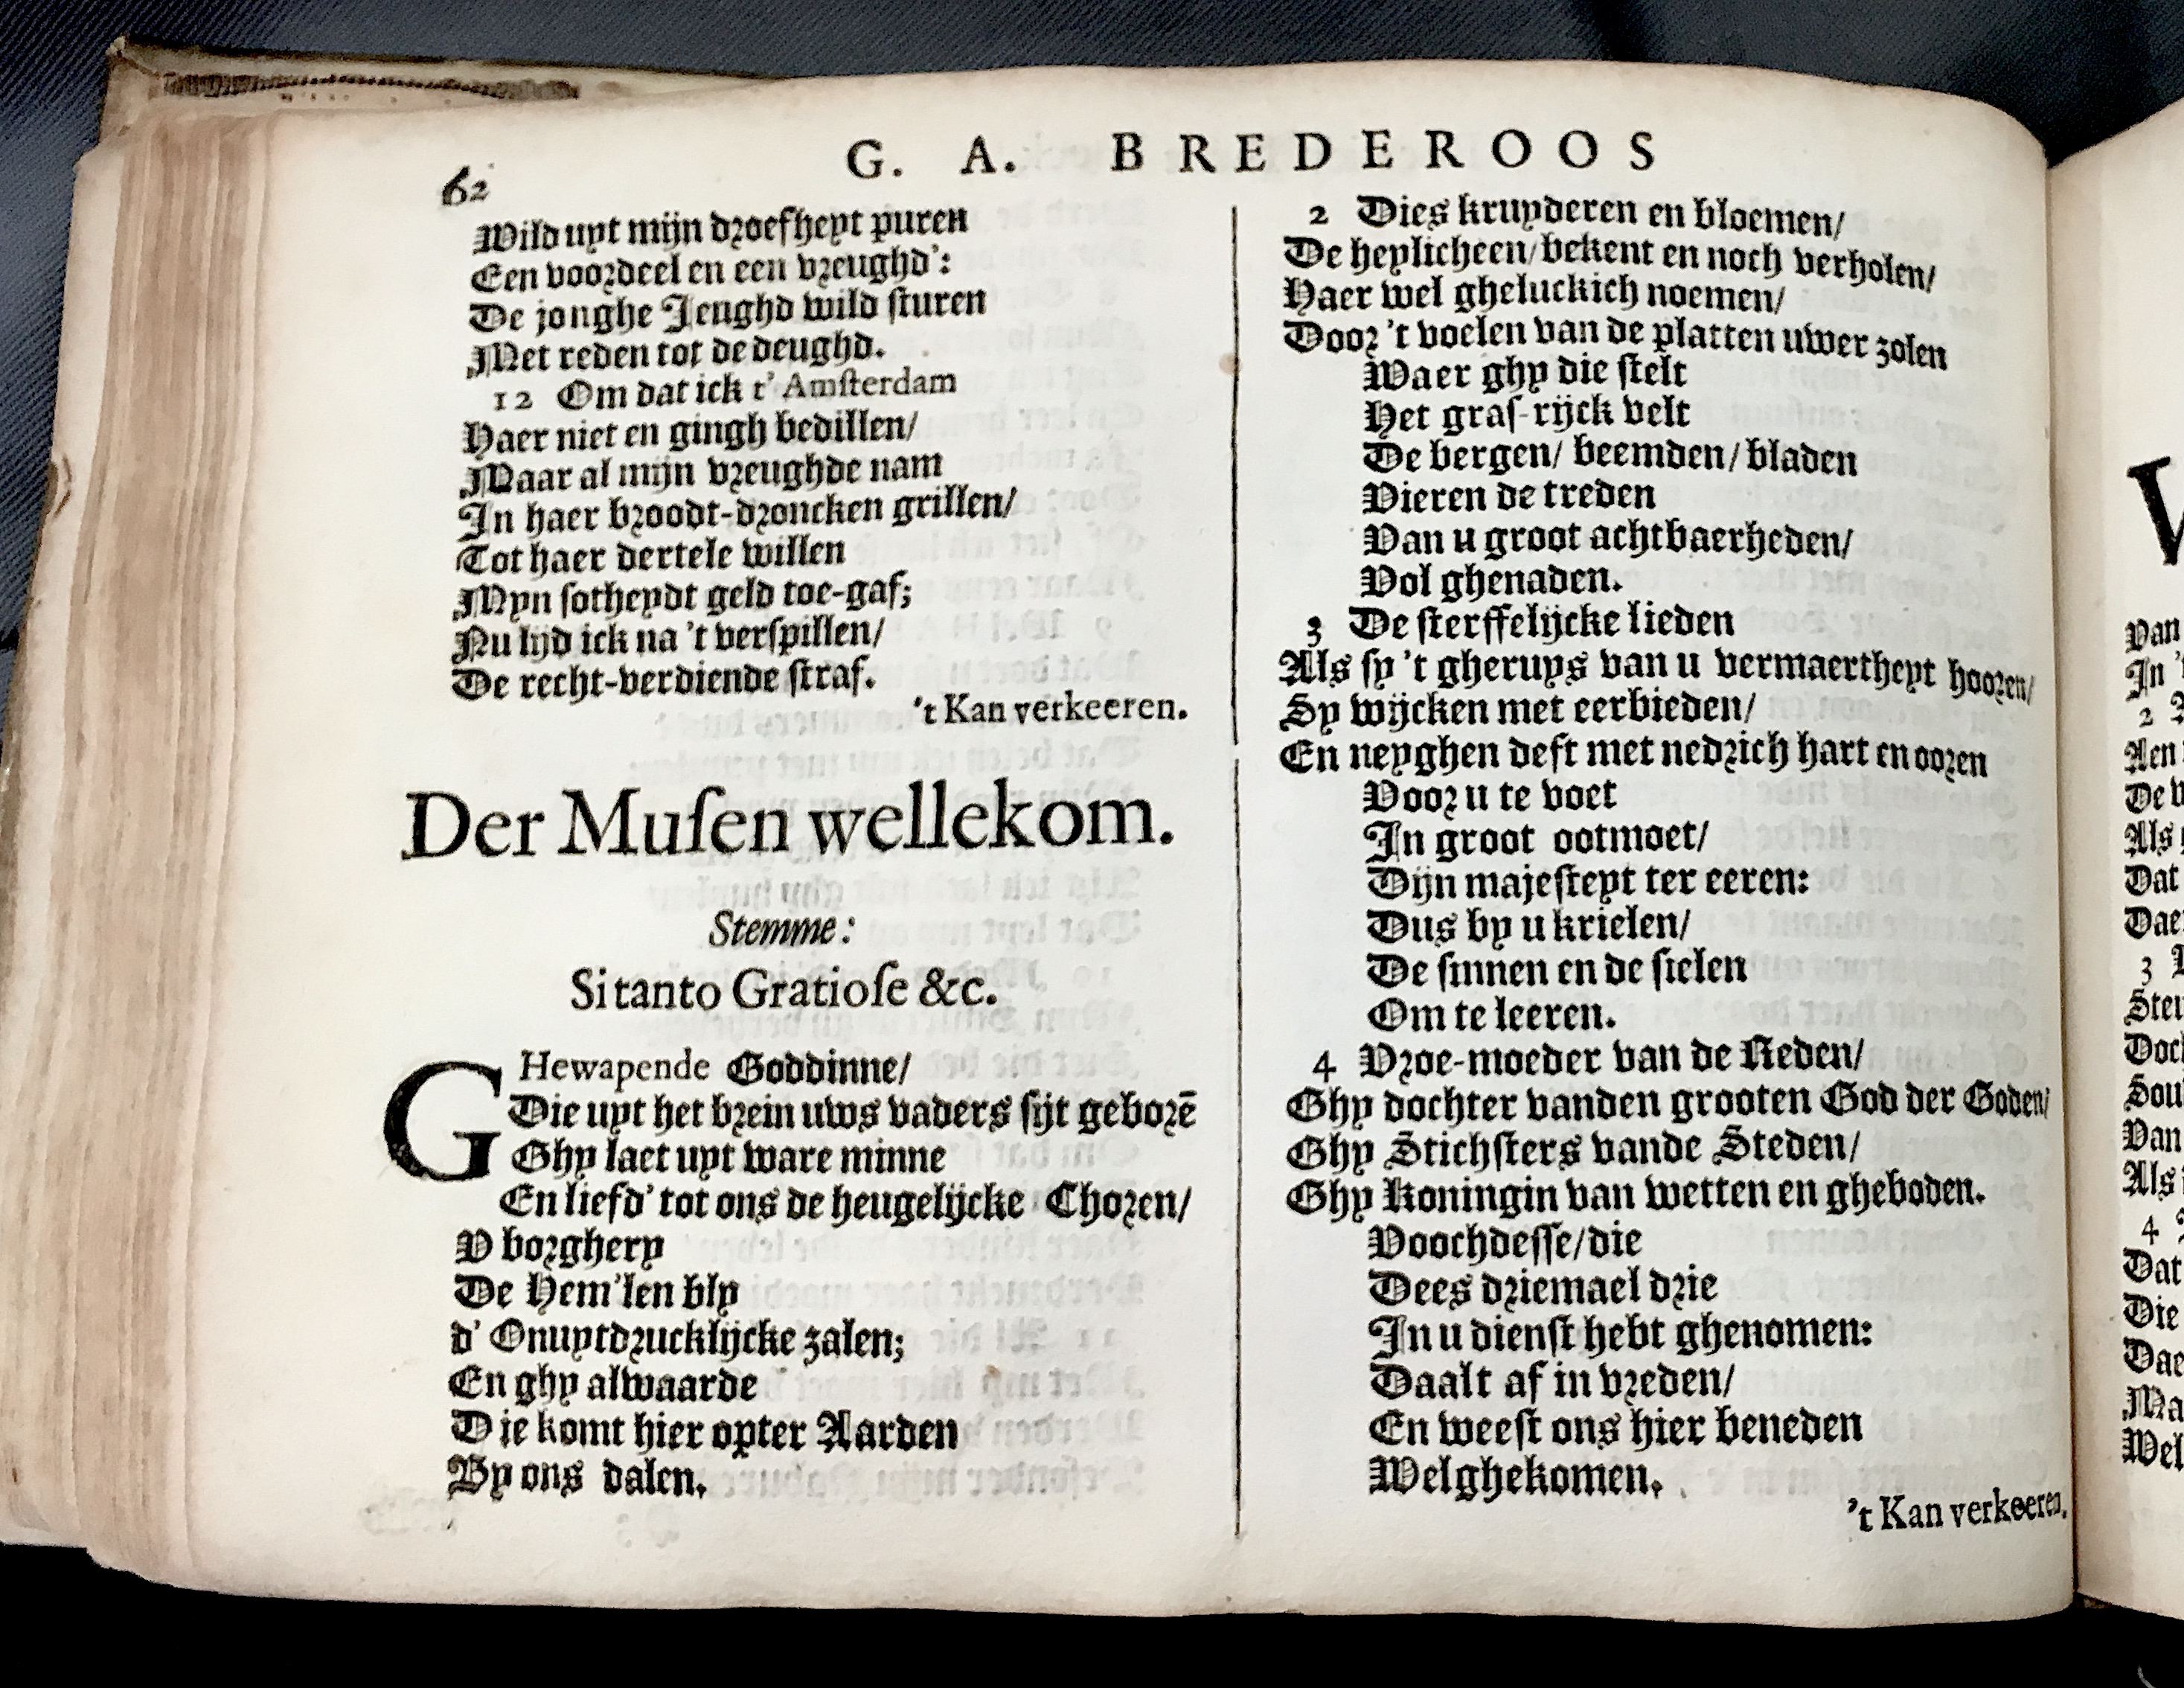 62
G. A. BREDEROOS
Wild uyt mijn droefheyt puren
Een voordeel en een vreughd':
De jonghe Jeughd wild sturen
Met reden tot de deughd.
12 Om dat ick t' Amsterdam
Haer niet en gingh bedillen/
Maar al mijn vreughde nam
In haer broodt-droncken grillen/
Tot haer dertele willen
Myn sotheydt geld toe-gaf;
Nu lijd ick na 't verspillen/
De recht-verdiende straf.
't Kan verkeeren.
Der Musen wellekom.
Stemme:
Si tanto Gratiose &c.
GHewapende Goddinne/
Die uyt het brein uws vaders sijt geborē
Ghy laet uyt ware minne
En liefd' tot ons de heugelijcke Choren/
V borghery
De Hem'len bly
d' Onuytdrucklijcke zalen;
En ghy alwaarde
Die komt hier opter Aarden
By ons dalen.
2 Dies kruyderen en bloemen/
De heylicheen/bekent en noch verholen/
Haer wel gheluckich noemen/
Door 't voelen van de platten uwer zolen
Waer ghy die stelt
Het gras-rijck velt
De bergen/ beemden/bladen
Vieren de treden
Van u groot achtbaerheden/
Vol ghenaden.
3 De sterffelijcke lieden
Als sy 't gheruys van u vermaertheyt hooren/
Sy wijcken met eerbieden/
En neyghen deft met nedrich hart en ooren
Voor u te voet
In groot ootmoet/
Dijn majesteyt ter eeren:
Dus by u krielen/
De sinnen en de sielen
Om te leeren.
4 Vroe-moeder van de Reden/
Ghy dochter vanden grooten God der Goden/
Ghy Stichsters vande Steden/
Ghy Koningin van wetten en gheboden.
Voochdesse/die
Dees driemael drie
In u dienst hebt ghenomen:
Daalt af in vreden/
En weest ons hier beneden
Welghekomen.
't Kan verkeeren.